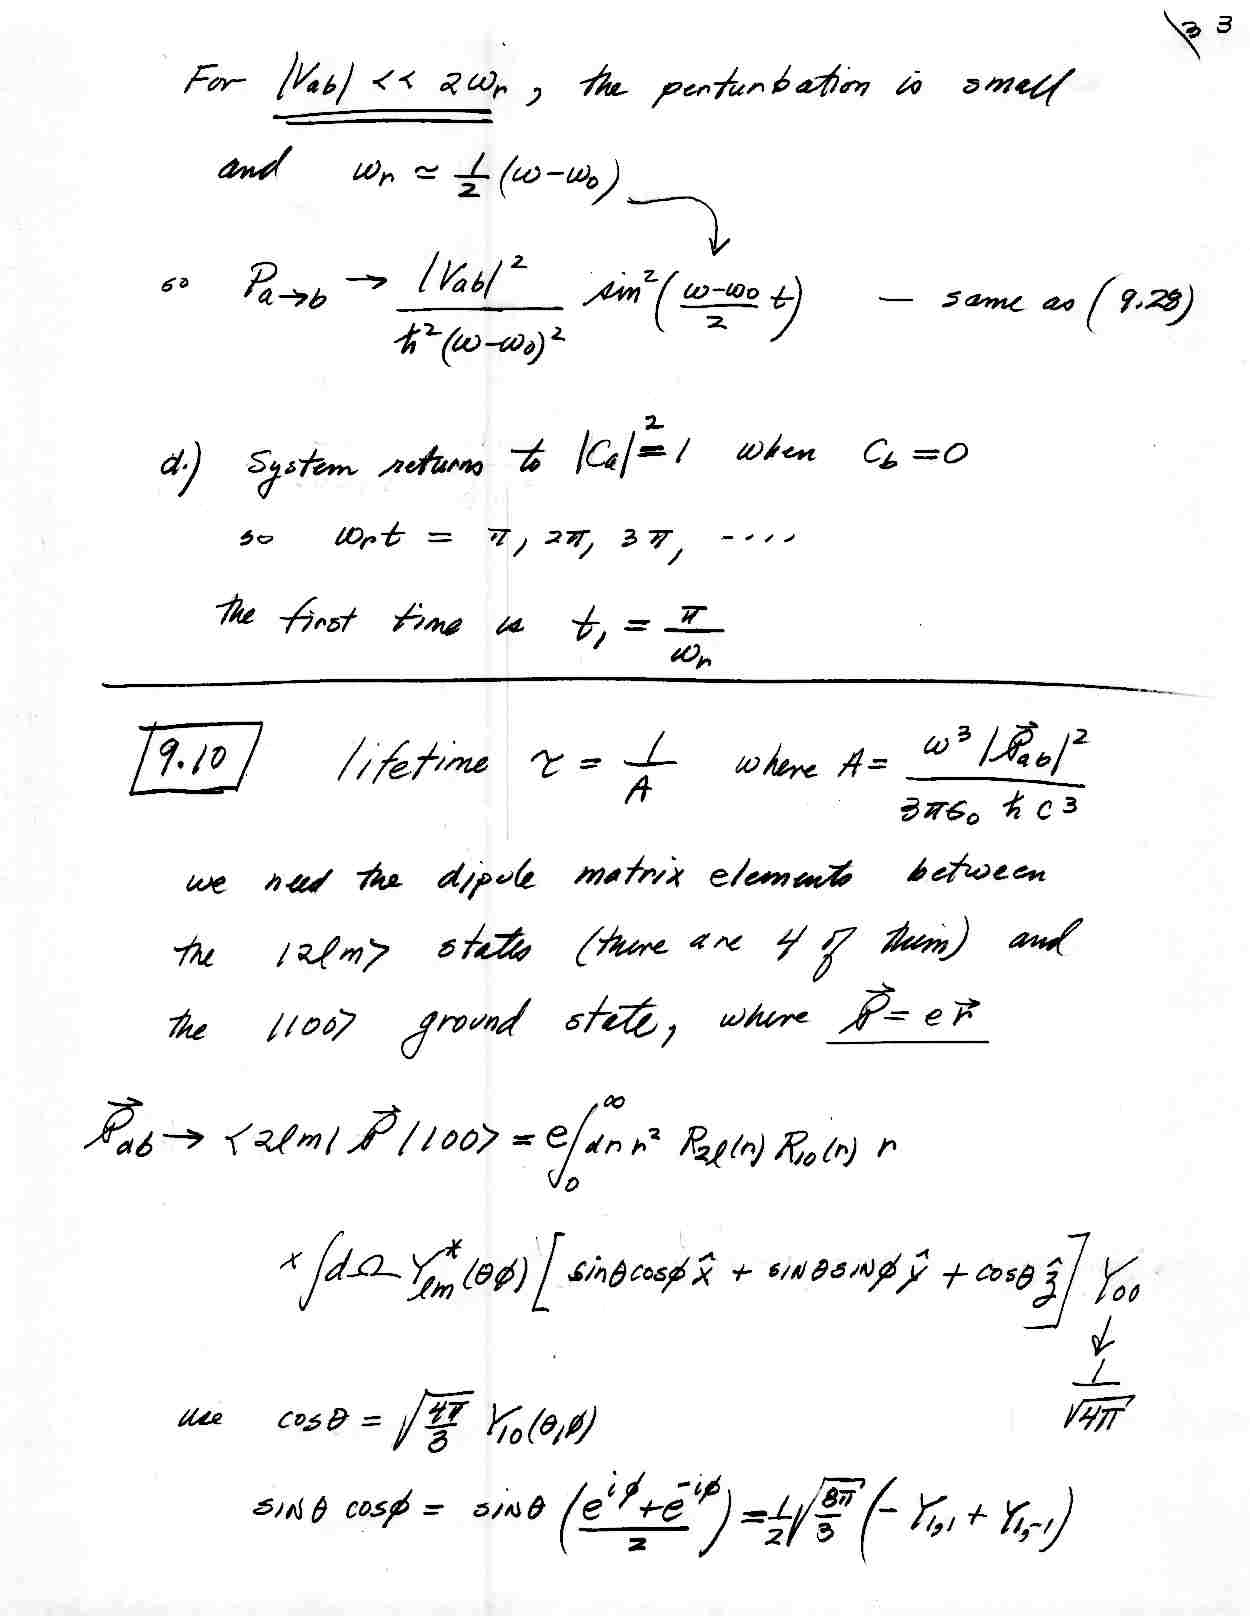 3 3
For |Vab| << 2ωr, the perturbation is small
and ωr ≃ 1/2 (ω-ω₀)
so Pa→b → |Vab|² / ħ²(ω-ω₀)² sin²( (ω-ω₀)/2 t) — same as (9.28)
d.) System returns to |Ca|² = 1 when Cb = 0
so ωrt = π, 2π, 3π, ....
the first time is t₁ = π/ωr
9.10 lifetime τ = 1/A where A = ω³ |P⃗ab|² / 3πε₀ ħ c³
we need the dipole matrix elements between
the |2lm> states (there are 4 of them) and
the |100> ground state, where P⃗ = e r⃗
P⃗ab → <2lm| P⃗ |100> = e ∫₀^∞ dr r² R2l(r) R10(r) r
× ∫dΩ Y*lm(θφ) [ sinθcosφ x̂ + sinθsinφ ŷ + cosθ ẑ ] Y00
↓
1/√4π
use cosθ = √(4π/3) Y10(θ,φ)
sinθ cosφ = sinθ ( (e^iφ + e^-iφ)/2 ) = 1/2 √(8π/3) (- Y1,1 + Y1,-1)